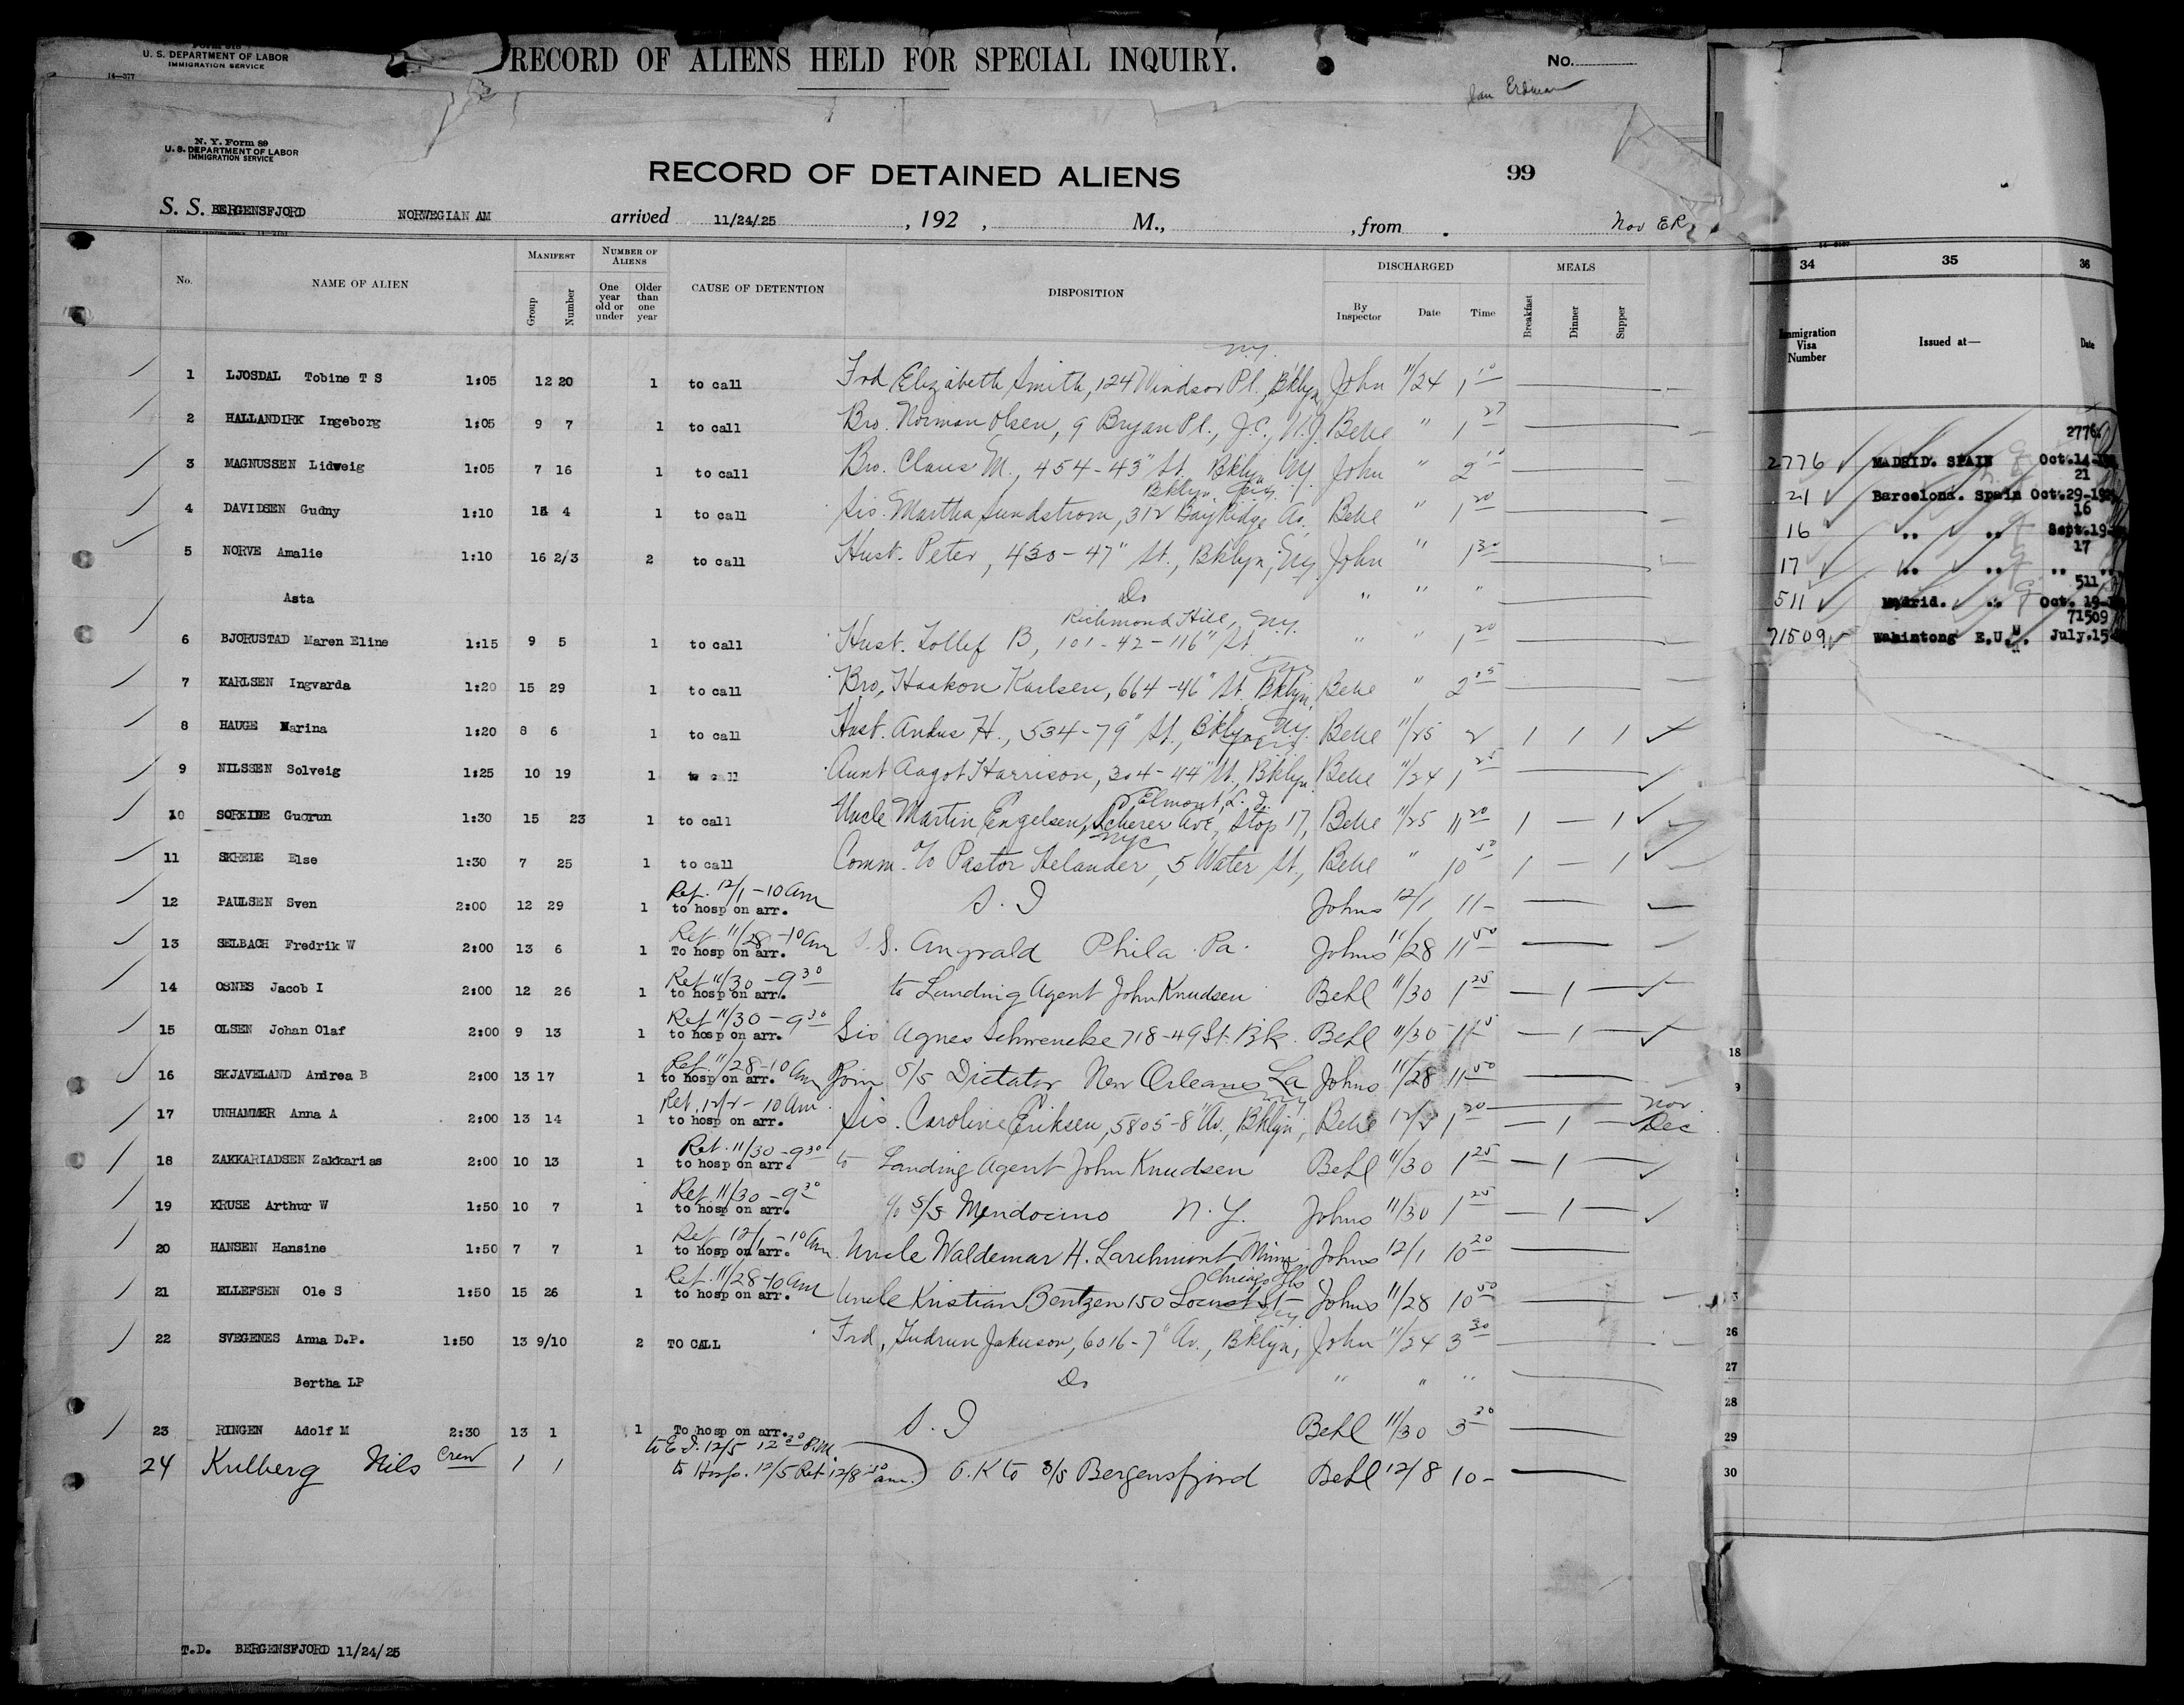 U. S. DEPARTMENT OF LABOR
IMMIGRATION SERVICE
14—377
RECORD OF ALIENS HELD FOR SPECIAL INQUIRY.
No.
Erdman
N. Y. Form 89
U. S. DEPARTMENT OF LABOR
IMMIGRATION SERVICE
RECORD OF DETAINED ALIENS
99
S. S. BERGENSFJORD NORWEGIAN AM arrived 11/24/25, 192 , M., , from . Nov ER
No. NAME OF ALIEN MANIFEST Group Number NUMBER OF ALIENS One year old or under Older than one year CAUSE OF DETENTION DISPOSITION DISCHARGED By Inspector Date Time MEALS Breakfast Dinner Supper
1 LJOSDAL Tobine T S 1:05 12 20 1 to call Frd Elizabeth Smith, 124 Windsor Pl., Bklyn N.Y. John 11/24 1 10
2 HALLANDIRK Ingeborg 1:05 9 7 1 to call Bro. Norman Olsen, 9 Bryan Pl., J.C., N.J. Behl " 1 27
3 MAGNUSSEN Lidweig 1:05 7 16 1 to call Bro. Claus M., 454-43" St, Bklyn NY. John " 2 10
4 DAVIDSEN Gudny 1:10 4 1 to call Sis. Martha Sundstrom, 312 Bay Ridge Av. Bklyn Behl " 1 20
5 NORVE Amalie 1:10 16 2/3 2 to call Husb. Peter, 430-47" St., Bklyn, NY. John " 1 30
Asta Do " " "
6 BJORUSTAD Maren Eline 1:15 9 5 1 to call Husb. Tollef B, 101-42-116" St Richmond Hill, N.Y. " " 1 20
7 KARLSEN Ingvarda 1:20 15 29 1 to call Bro, Haakon Karlsen, 664-46" St. Bklyn, Behl " 2 05
8 HAUGE Marina 1:20 8 6 1 to call Husb. Andus H., 534-79" St., Bklyn NY. Behl 11/25 2 1 1 1
9 NILSSEN Solveig 1:25 10 19 1 to call Aunt Aagot Harrison, 304-44" St, Bklyn. Behl 11/24 1 25
10 SOREIDE Gudrun 1:30 15 23 1 to call Uncle Martin Engelsen, Scherer Ave, Stop 17, Elmont, L. I. Behl 11/25 11 20 1 — 1
11 SKREIE Else 1:30 7 25 1 to call Comm. c/o Pastor Helander, 5 Water St., NYC Behl " 10 50 1 — 1
12 PAULSEN Sven 2:00 12 29 1 Ret. 12/1-10 am to hosp on arr. S. I Johns 12/1 11-
13 SELBACH Fredrik W 2:00 13 6 1 Ret 11/28-10 am To hosp on arr. S.S. Angvald Phila. Pa. Johns 11/28 11 50
14 OSNES Jacob I 2:00 12 26 1 Ret 11/30-9 30 to hosp on arr. to Landing Agent John Knudsen Behl 11/30 1 25 — 1 —
15 OLSEN Johan Olaf 2:00 9 13 1 Ret 11/30-9 30 to hosp on arr. Sis Agnes Schwencke 718-49 St. Bk. Behl 11/30 — 1 —
16 SKJAVELAND Andrea B 2:00 13 17 1 Ret. 11/28-10 am to hosp on arr. Join S/S Dictator New Orleans La Johns 11/28 11 50
17 UNHAMMER Anna A 2:00 13 14 1 Ret. 12/2-10 am. to hosp on arr. Sis. Caroline Eriksen, 5805-8" Av., Bklyn, NY Behl 12/2 1 20 — 1 — Nov. Dec
18 ZAKKARIADSEN Zakkarias 2:00 10 13 1 Ret. 11/30-9 30 to hosp on arr. to Landing Agent John Knudsen Behl 11/30 1 25 — 1 —
19 KRUSE Arthur W 1:50 10 7 1 Ret. 11/30-9 30 to hosp on arr. c/o S/S Mendocino N.Y. Johns 11/30 1 25 — 1 —
20 HANSEN Hansine 1:50 7 7 1 Ret 12/1-10 am to hosp on arr. Uncle Waldemar H. Larchmont Minn Johns 12/1 10 20
21 ELLEFSEN Ole S 1:50 15 26 1 Ret. 11/28-10 am to hosp on arr. Uncle Kristian Bentzen 150 Locust St Chicago Ills Johns 11/28 10 50
22 SVEGENES Anna D.P. 1:50 13 9/10 2 TO CALL Frd, Gudrun Jakuson, 6016-7" Av., Bklyn, NY John 11/24 3 30
Bertha LP Do " " "
23 RINGEN Adolf M 2:30 13 1 1 To hosp on arr. S. I Behl 11/30 3 30
24 Kulberg Nils Crew 1 1 to E.I. 12/5 12 30 P.M. to Hosp. 12/5 Ret 12/8 am. O.K to S/S Bergensfjord Behl 12/8 10-
T.D. BERGENSFJORD 11/24/25
34 35 36
Immigration Visa Number Issued at— Date
2776
2776 MADRID. SPAIN Oct.14
21
21 Barcelona. Spain Oct.29-192
16
16 .. .. Sept.19
17
17 .. .. .. ..
511
511 Madrid. .. Oct. 19
71509
71509 Wahintong E.U. July.15
18
9
26
27
28
29
30